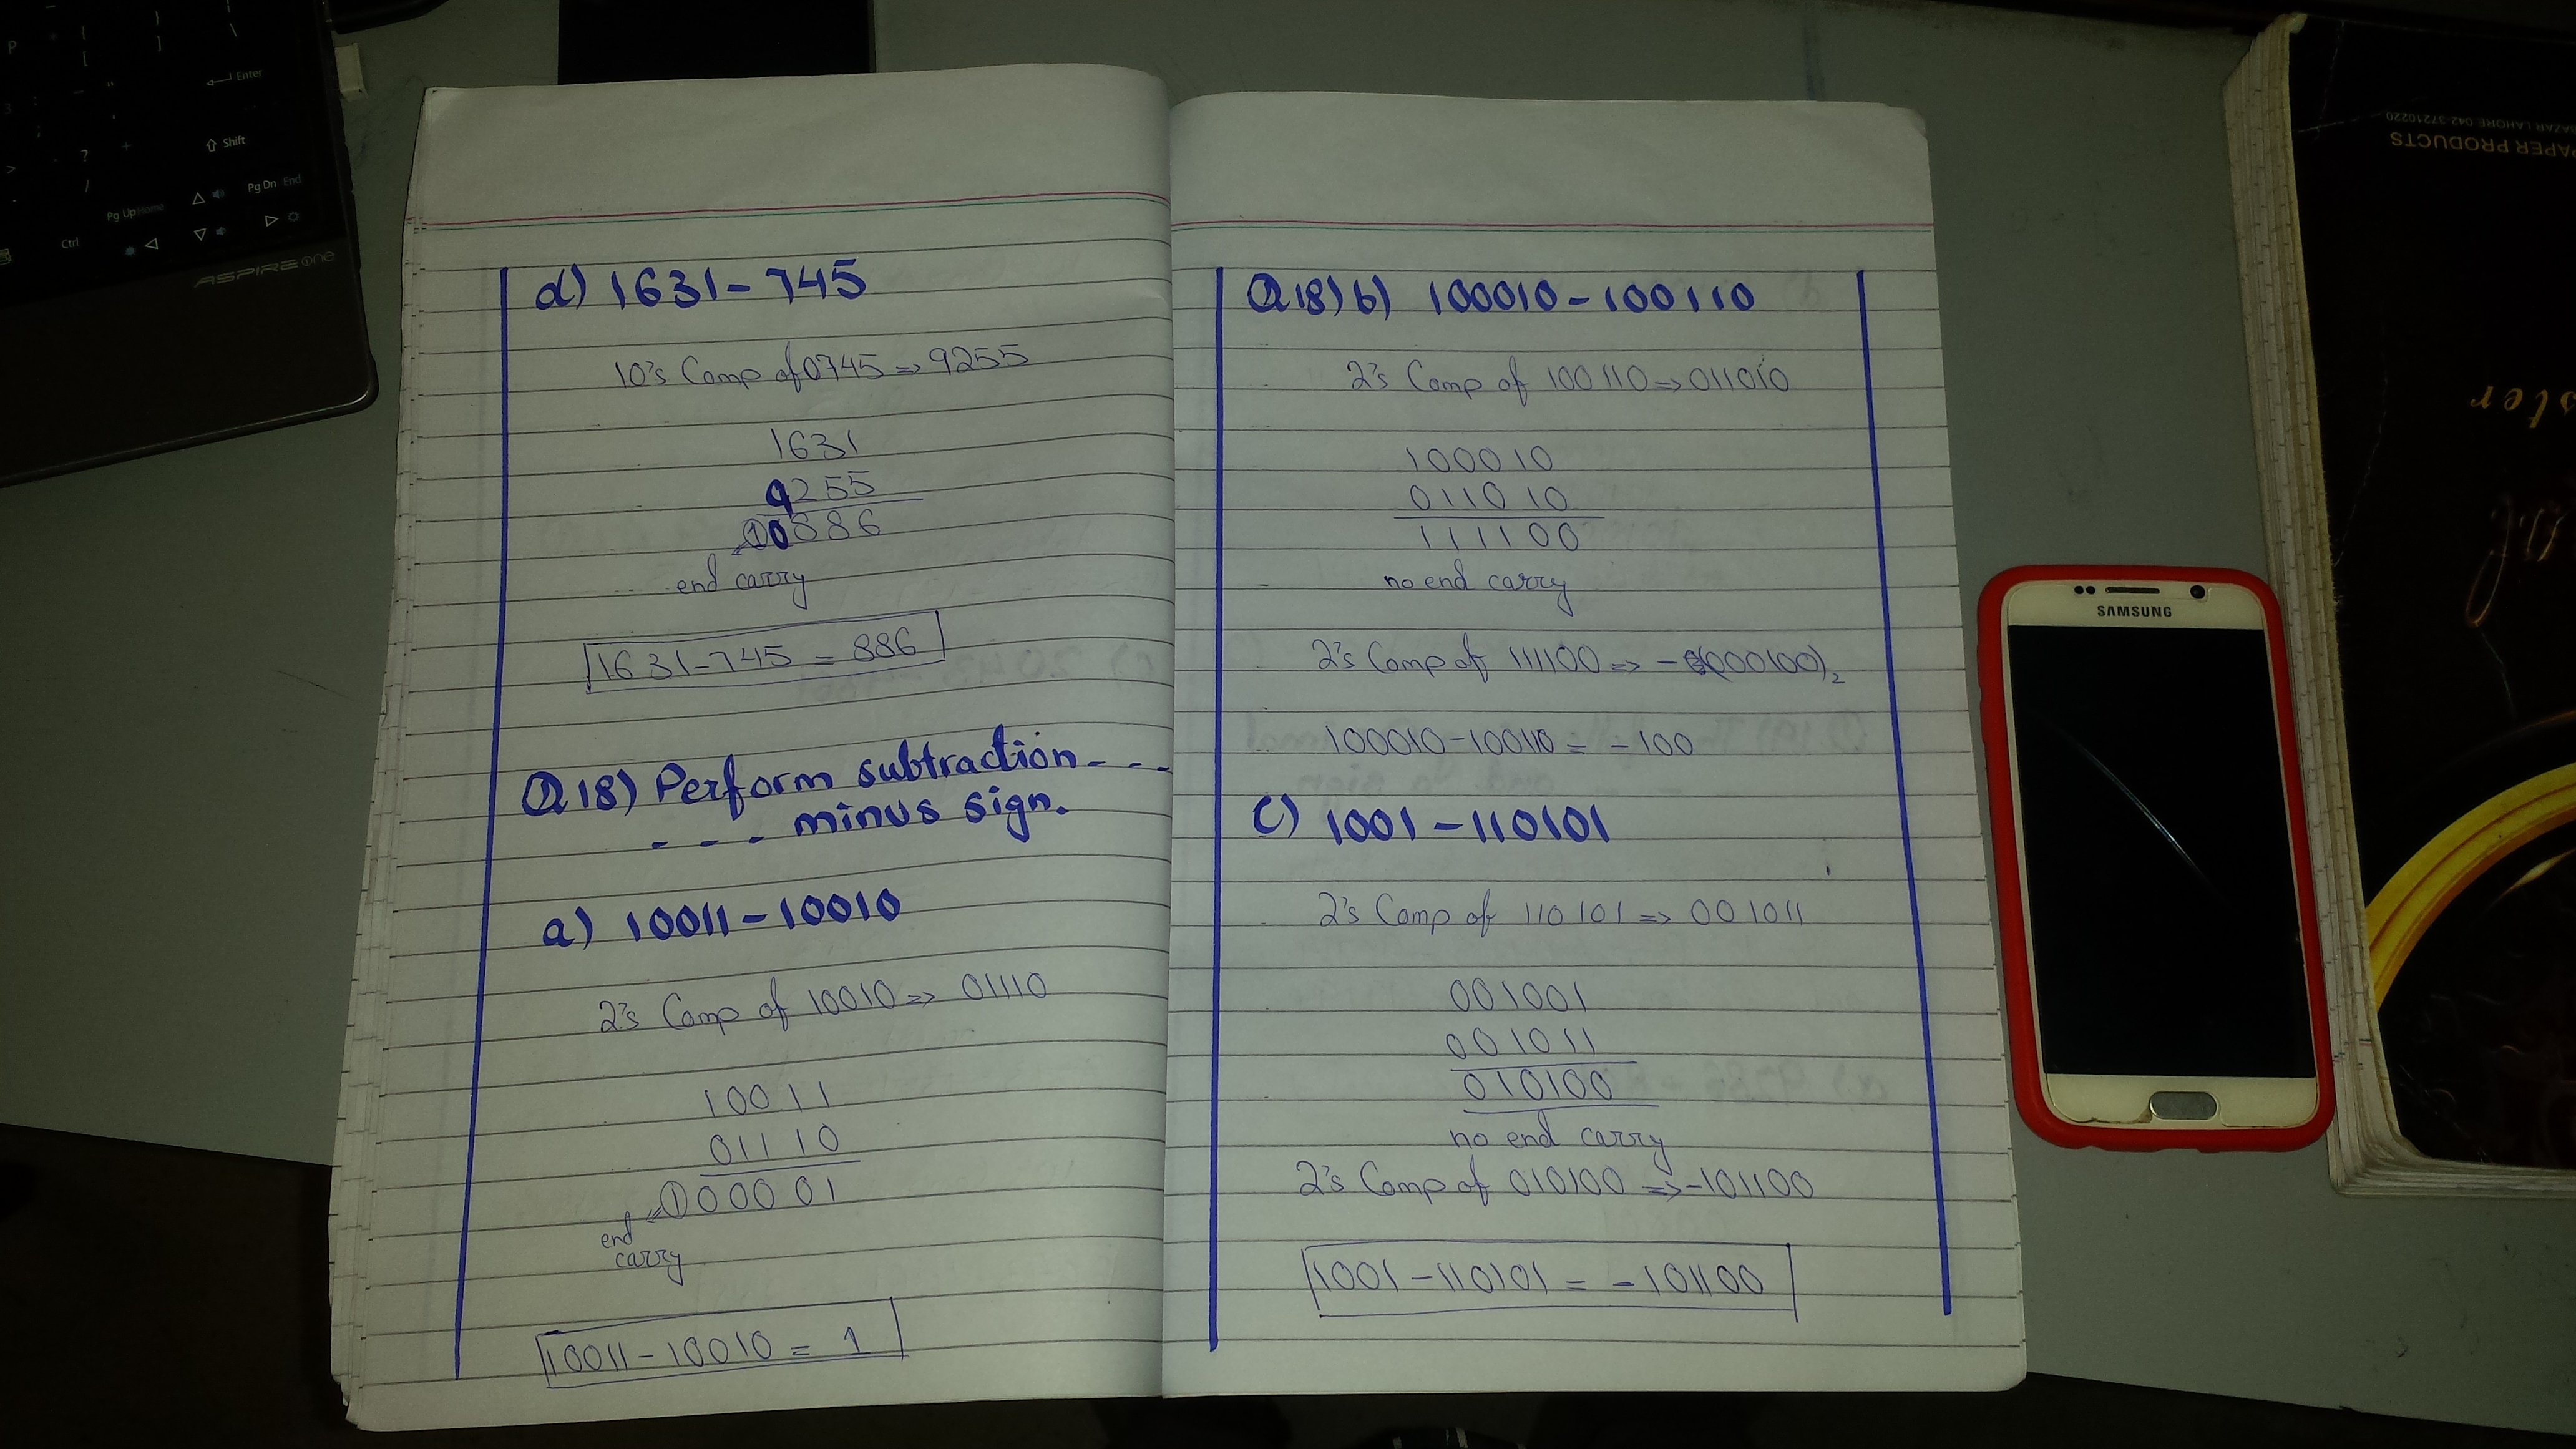 d) 1631 - 745
10's Comp of 0745 => 9255
1631
9255
①0886
end carry
1631-745 = 886
Q18) Perform subtraction - - -
- - - minus sign.
a) 10011 - 10010
2's Comp of 10010 => 01110
10011
01110
①00001
end carry
10011 - 10010 = 1
Q18) b) 100010 - 100110
2's Comp of 100110 => 011010
100010
011010
111100
no end carry
2's Comp of 111100 => -(000100)₂
100010-100110 = -100
c) 1001 - 110101
2's Comp of 110101 => 001011
001001
001011
010100
no end carry
2's Comp of 010100 => -101100
1001 - 110101 = -101100
ASPIRE one
Ctrl
Pg Up
Home
Pg Dn
End
Shift
Enter
SAMSUNG
PAPER PRODUCTS
BAZAR LAHORE 042-37210220